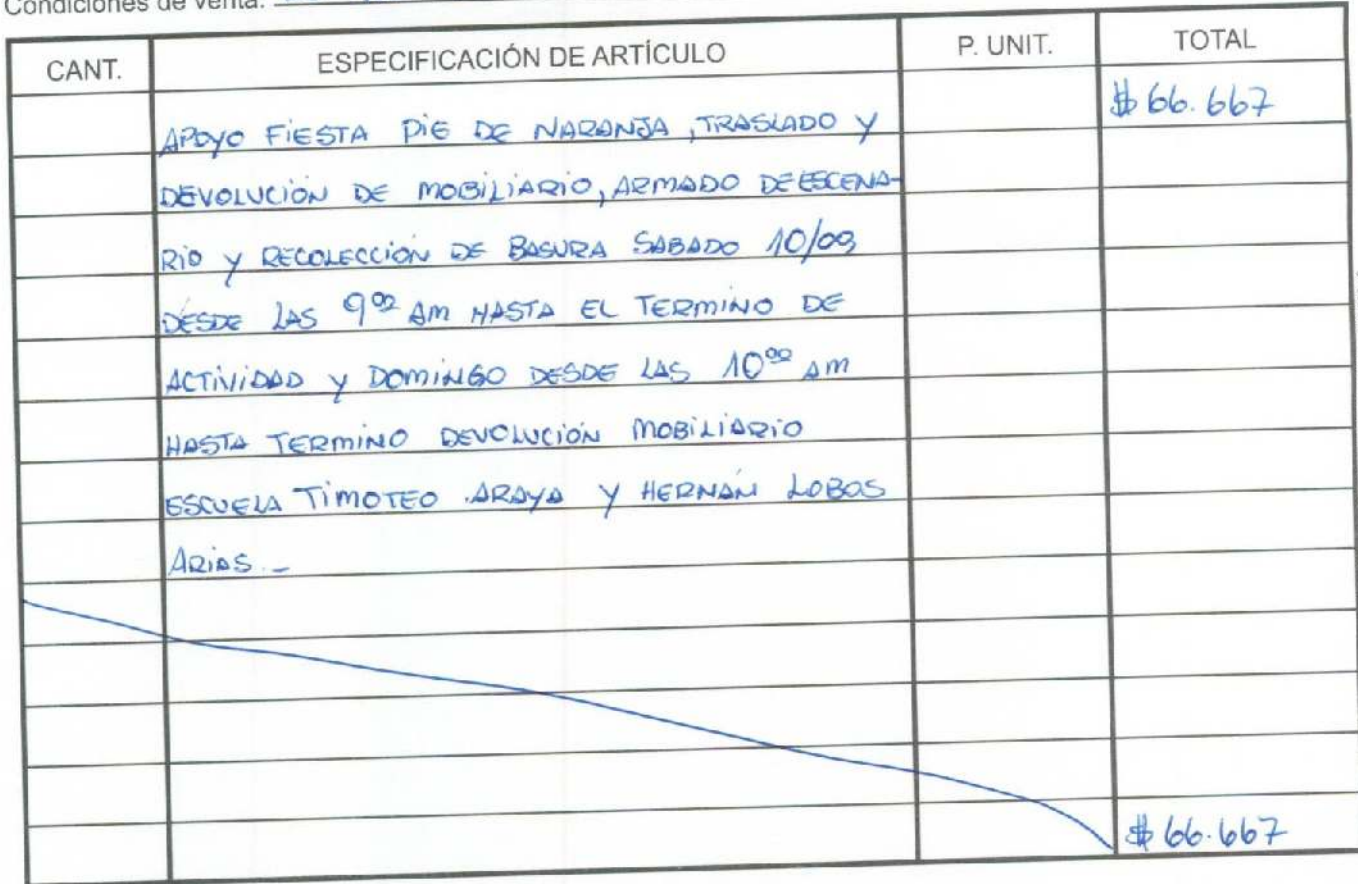 Condiciones de venta:
CANT. ESPECIFICACIÓN DE ARTÍCULO P. UNIT. TOTAL
APOYO FIESTA PIE DE NARANJA, TRASLADO Y $66.667
DEVOLUCIÓN DE MOBILIARIO, ARMADO DE ESCENA-
RIO Y RECOLECCIÓN DE BASURA SABADO 10/09
DESDE LAS 9:00 AM HASTA EL TERMINO DE
ACTIVIDAD Y DOMINGO DESDE LAS 10:00 AM
HASTA TERMINO DEVOLUCIÓN MOBILIARIO
ESCUELA TIMOTEO ARAYA Y HERNÁN LOBOS
ARIAS.-
$66.667